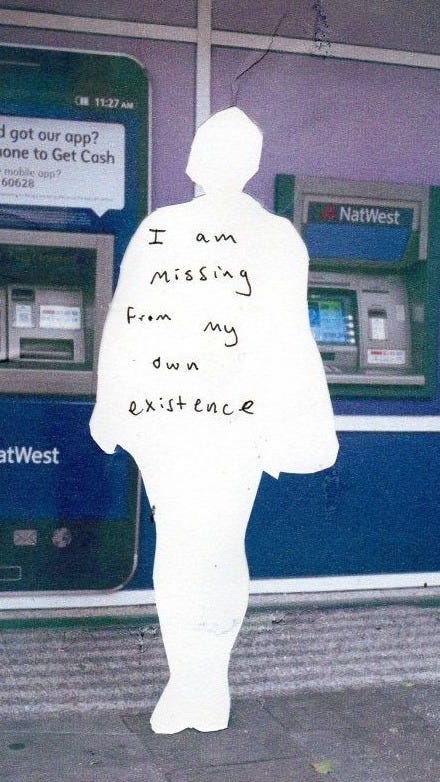 11:27 AM
d got our app?
one to Get Cash
mobile app?
60628
NatWest
I am
missing
from my
own
existence
atWest